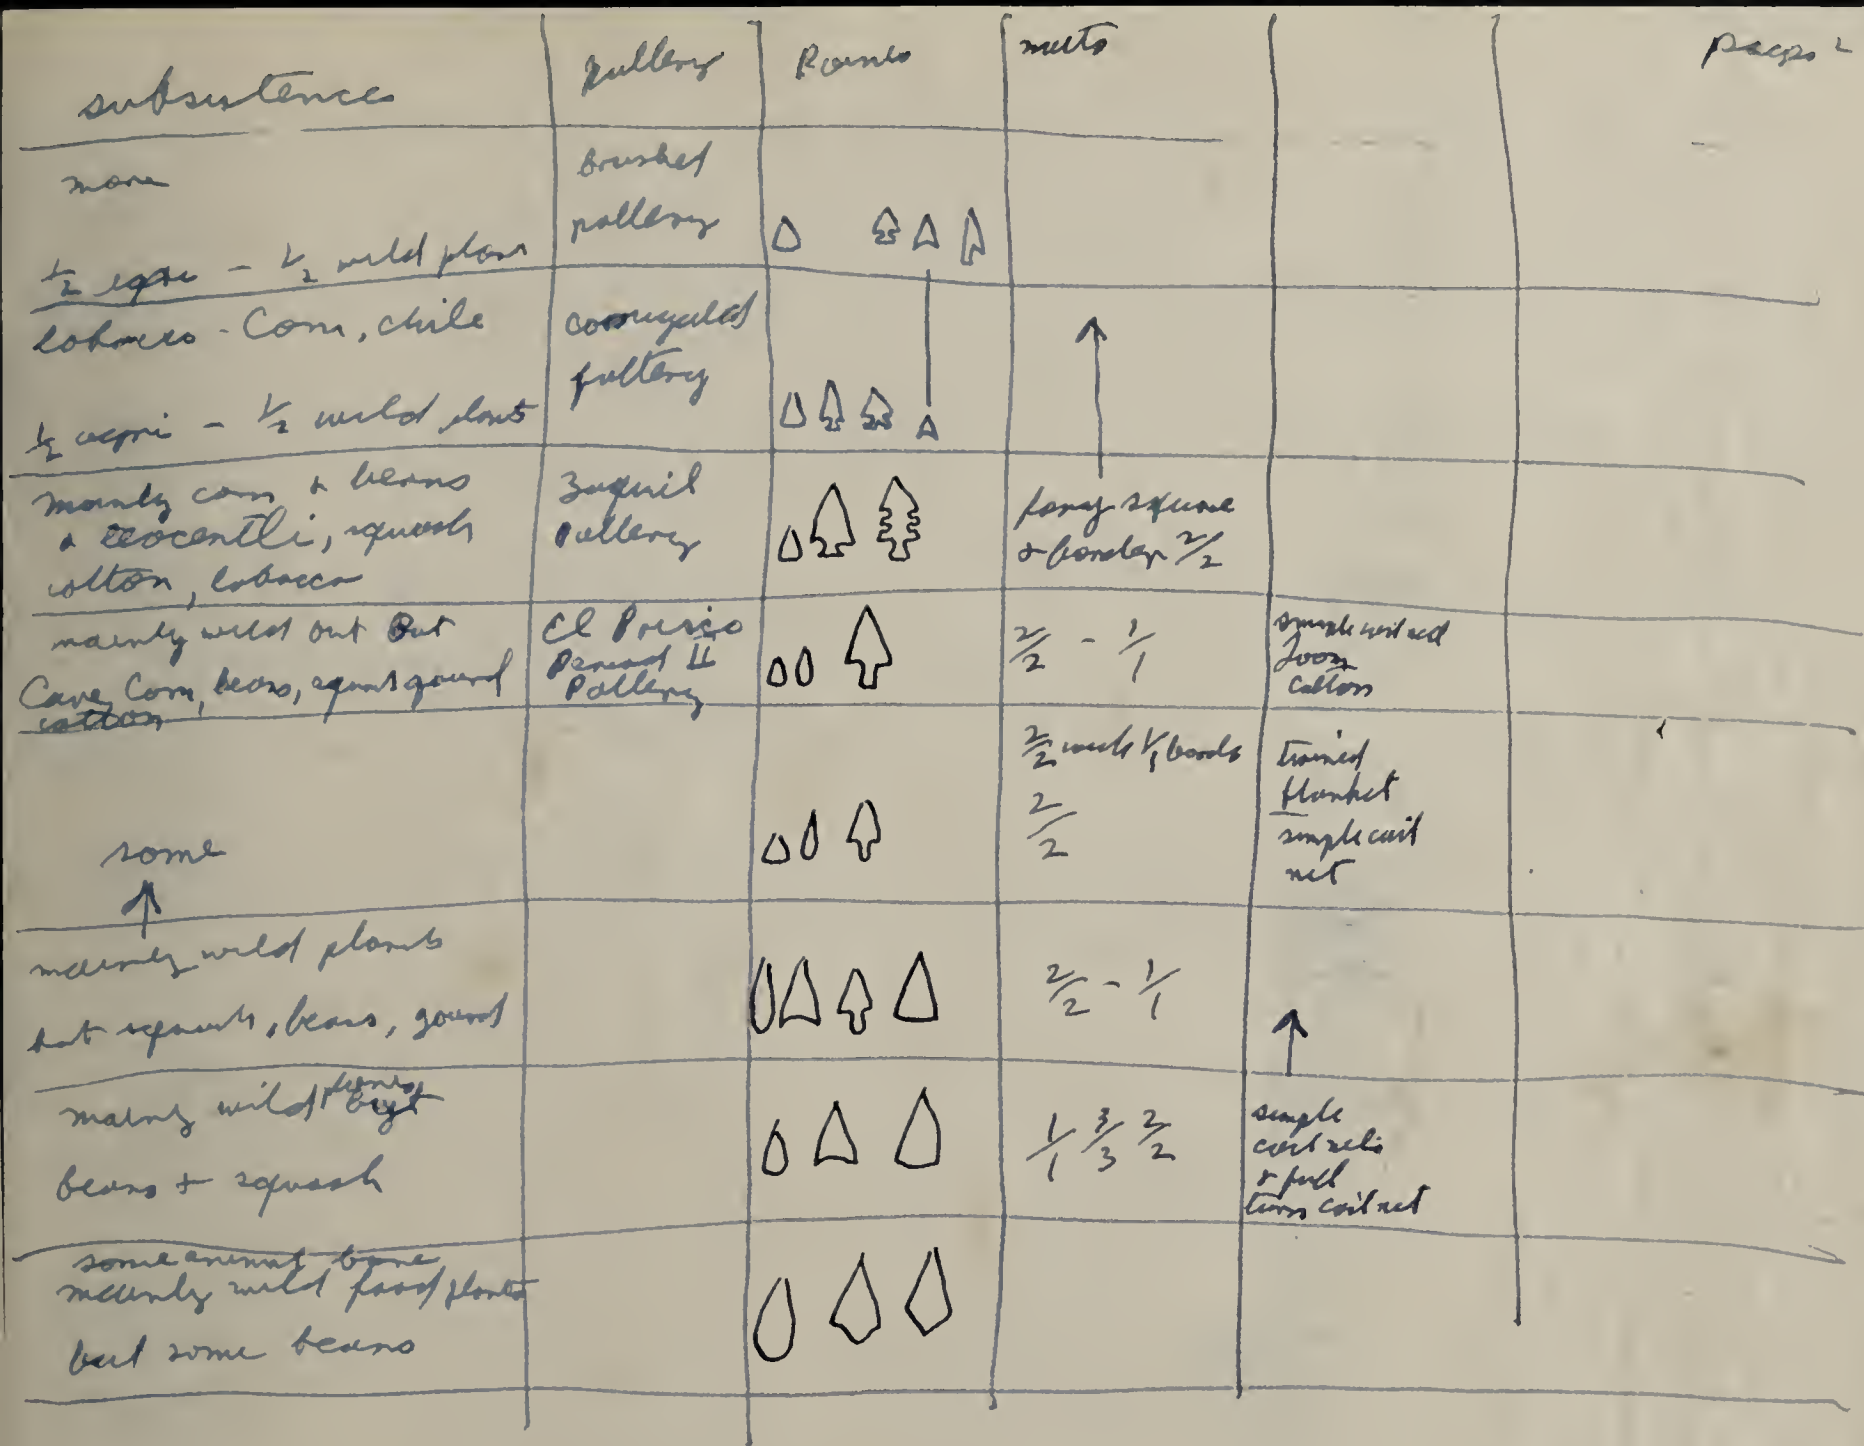 subsistence
pottery
Points
mats
page 2
more
brushed
pottery
1/2 agri - 1/2 wild plants
tobacco - Corn, chile
corrugated
pottery
1/2 agri - 1/2 wild plants
mainly corn + beans
+ teocentli, squash
cotton, tobacco
Zaquil
Pottery
square
+ border 2/2
mainly wild but
Cane, Corn, beans, squash gourd
cotton
El Prisco
Period II
Pottery
2/2 - 1/1
simple coil net
loom
cotton
some
2/2 with 1/1 bands
2/2
twined
blanket
simple coil
net
mainly wild plants
but squash, beans, gourd
2/2 - 1/1
mainly wild plants but
beans + squash
1/1 3/3 2/2
simple
coil nets
+ full
turn coil net
some animal bone
mainly wild food plants
but some beans